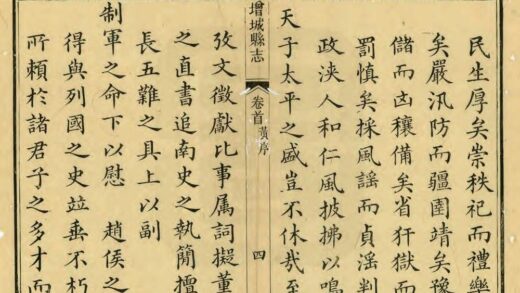 民生厚矣崇秩祀而禮樂
矣嚴汛防而疆圉靖矣豫
儲而凶穰備矣省犴獄而
罰慎矣採風謠而貞淫判
政浹人和仁風披拂以鳴
天子太平之盛豈不休哉至
增城縣志
卷首
黃序
四
攷文徵獻比事属詞擬董
之直書追南史之執簡擅
長五難之具上以副
制軍之命下以慰 趙侯之
得與列國之史竝垂不朽
所頼於諸君子之多才而